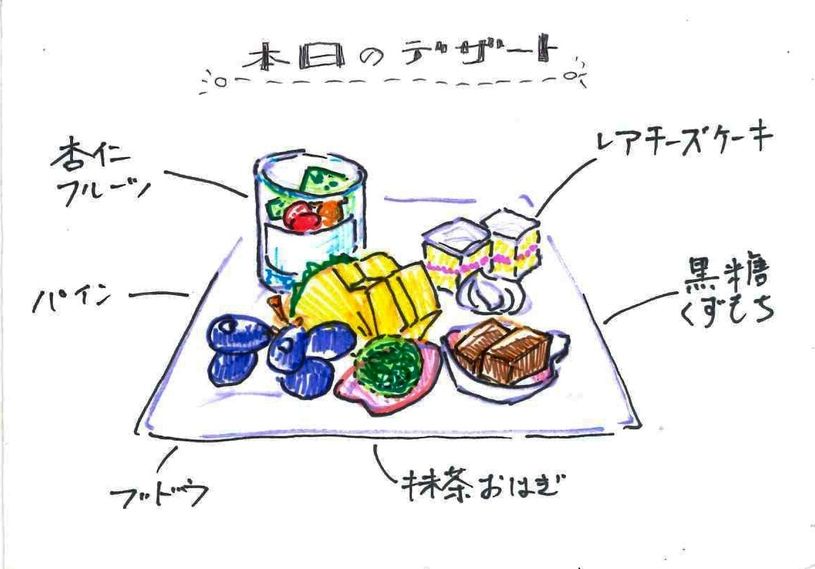 本日のデザート
杏仁
フルーツ
レアチーズケーキ
パイン
黒糖
くずもち
ブドウ
抹茶おはぎ